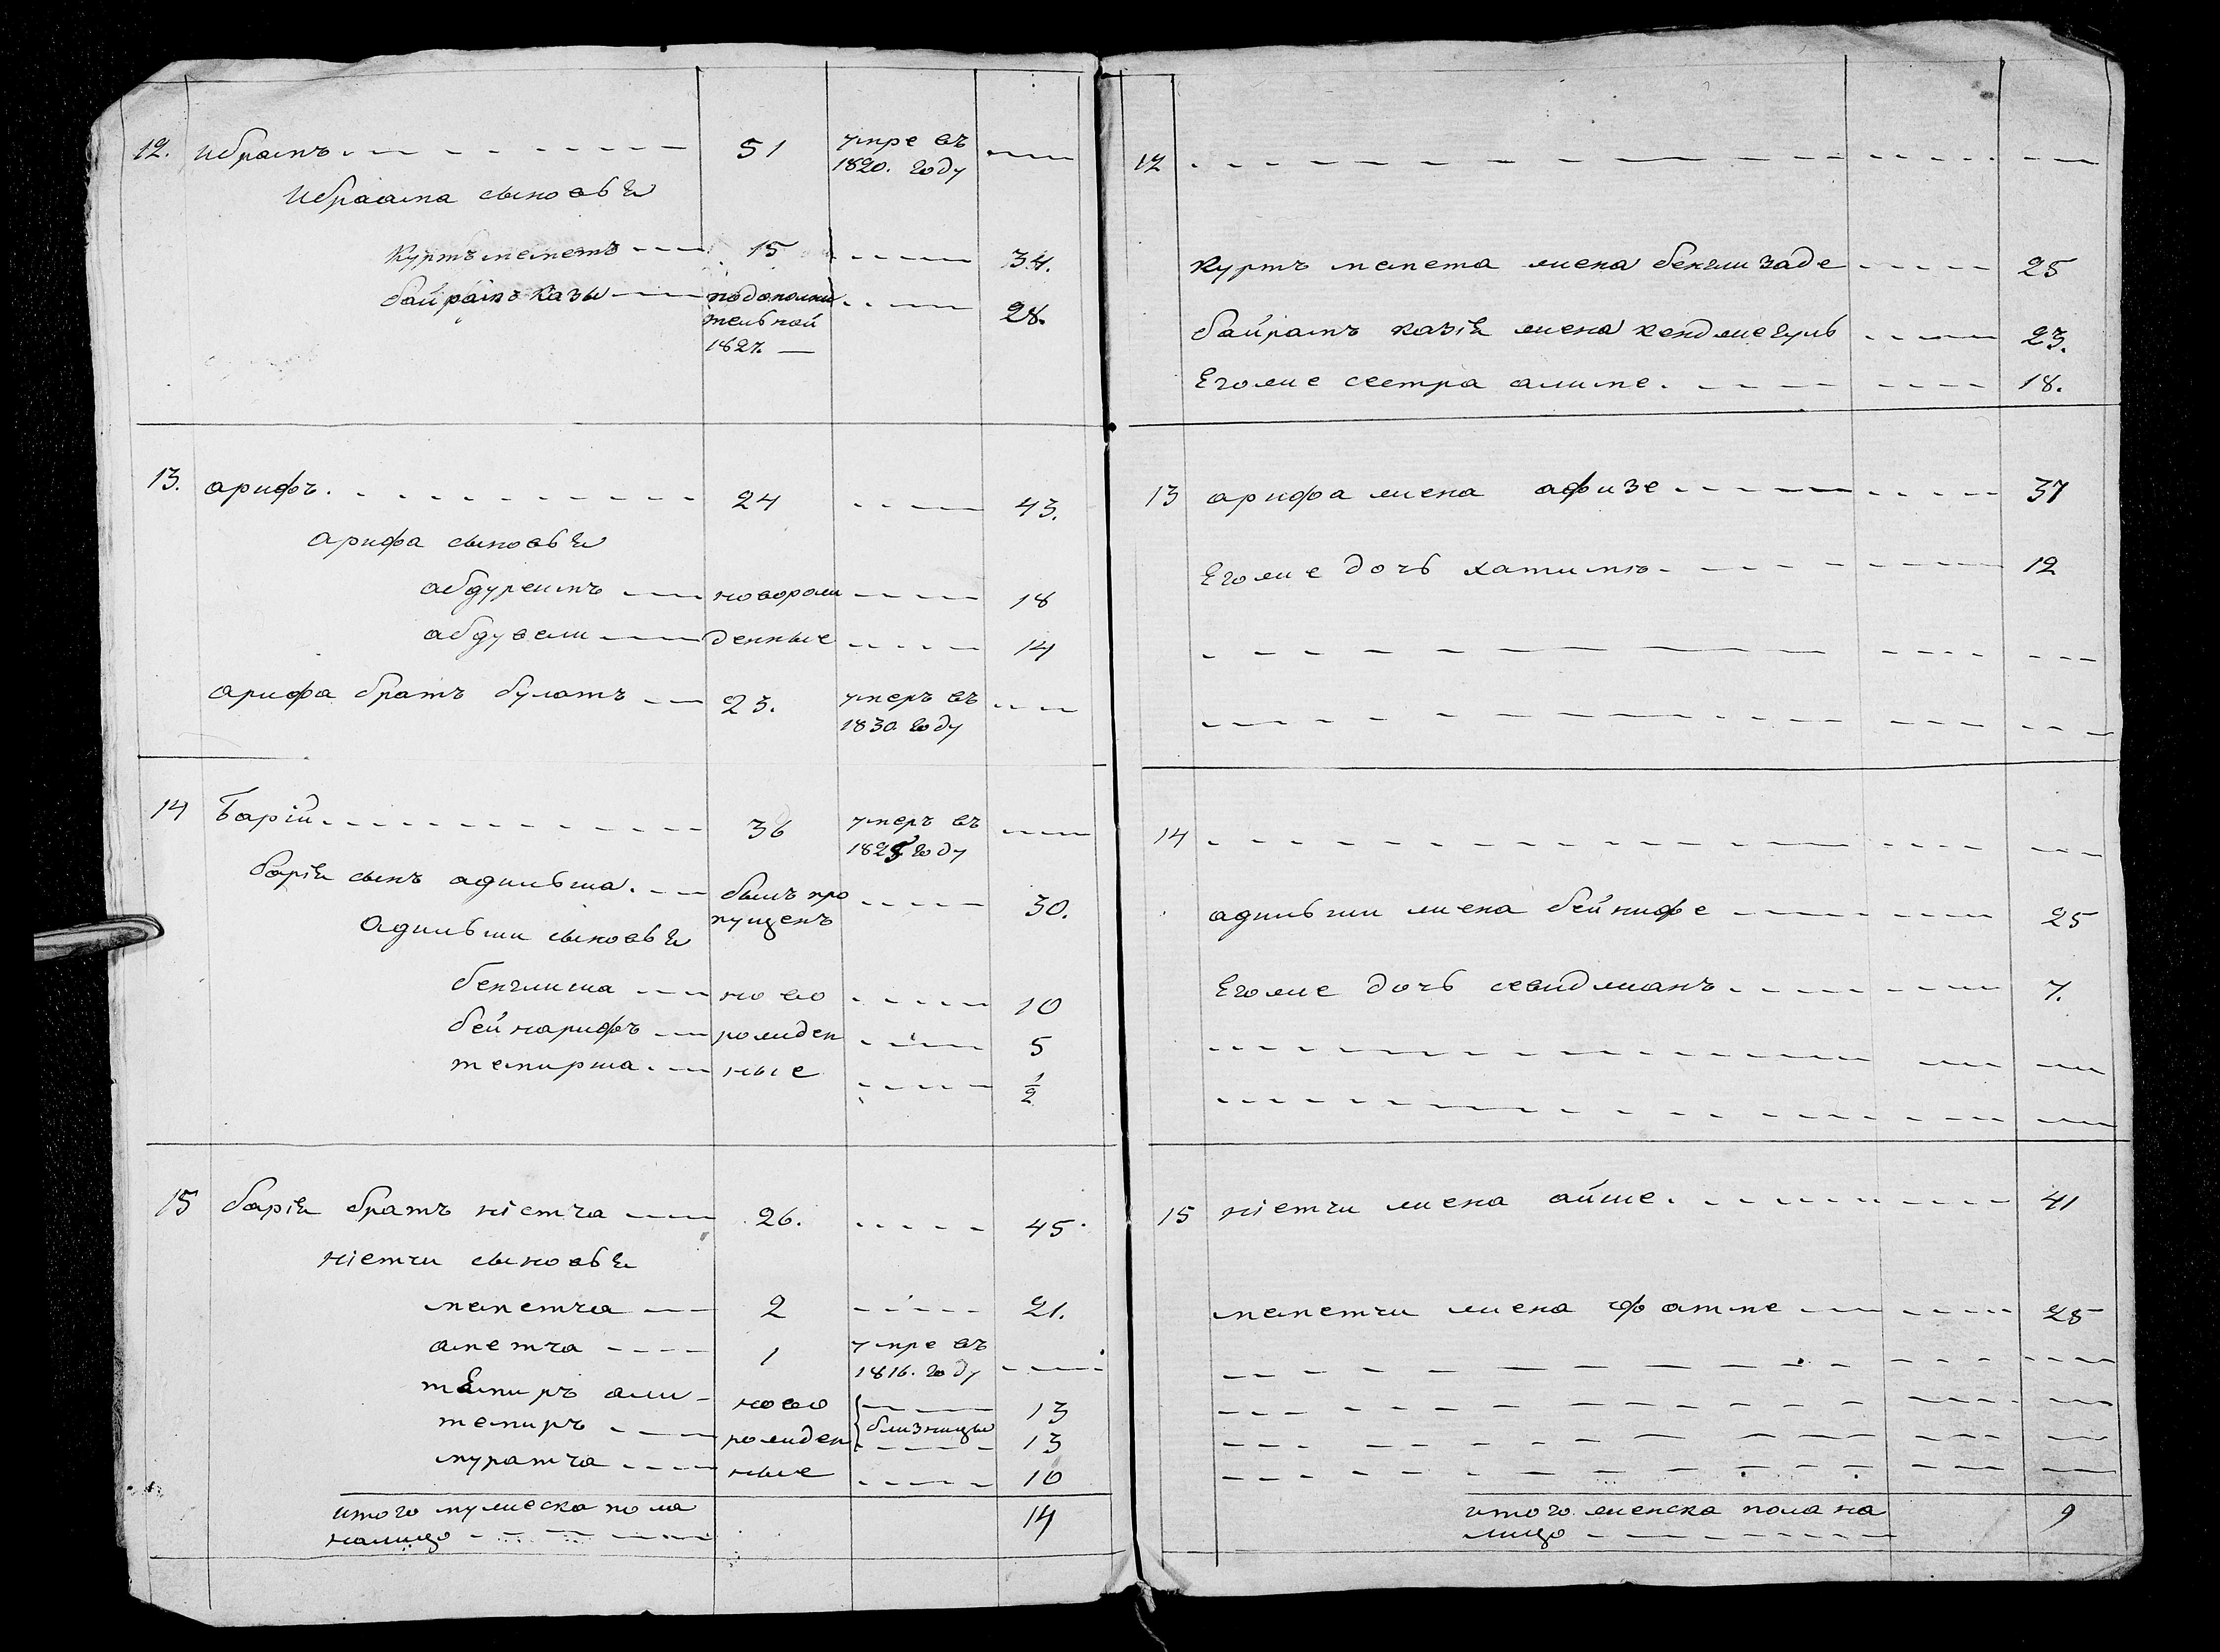 12. Ибрамъ 51 умре въ
1820. году
Ибраима сыновья
Куртъ мемметъ 15 34.
байрамъ казы подополни 28.
тельной
1827.
13. арифъ. 24 43.
Арифа сыновья
абдуреимъ новорож 18
абдувели денные 14
арифа братъ булатъ 23. умеръ въ
1830. году
14 Барій 36 умеръ въ
1825 году
барія сынъ адильша. былъ про 30.
пущенъ
Адильши сыновья
бекмиша ново 10
бейнарифъ рожден 5
темирша. ные 1/2
15 барія братъ ніетча 26. 45
ніетчи сыновья
меметча 2 21.
аметча 1 умре въ
1816. году
темиръ али ново 13
темиръ рожден близнецы 13
муратча ные 10
итого мужеска пола
налицо 14
12
Куртъ мемета жена бекзизаде 25
байрамъ казія жена кендже гуль 23.
Его же сестра алиме. 18.
13 арифа жена афизе 37
Его же дочь хатиме 12
14
адильши жена бейнифе 25
Его же дочь севиджанъ 7.
15 ніетчи жена айше. 41
меметчи жена фатме 28
итого женска пола на
лицо 9